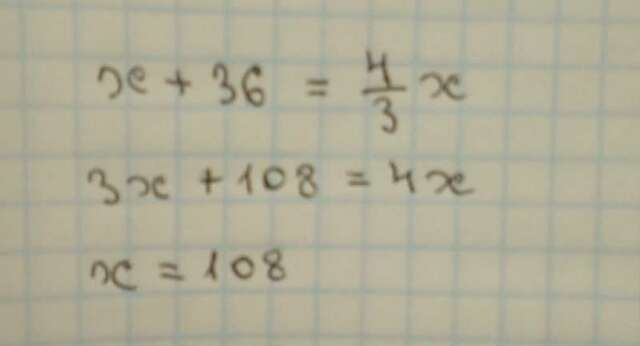 x + 36 = 4/3 x
3x + 108 = 4x
x = 108